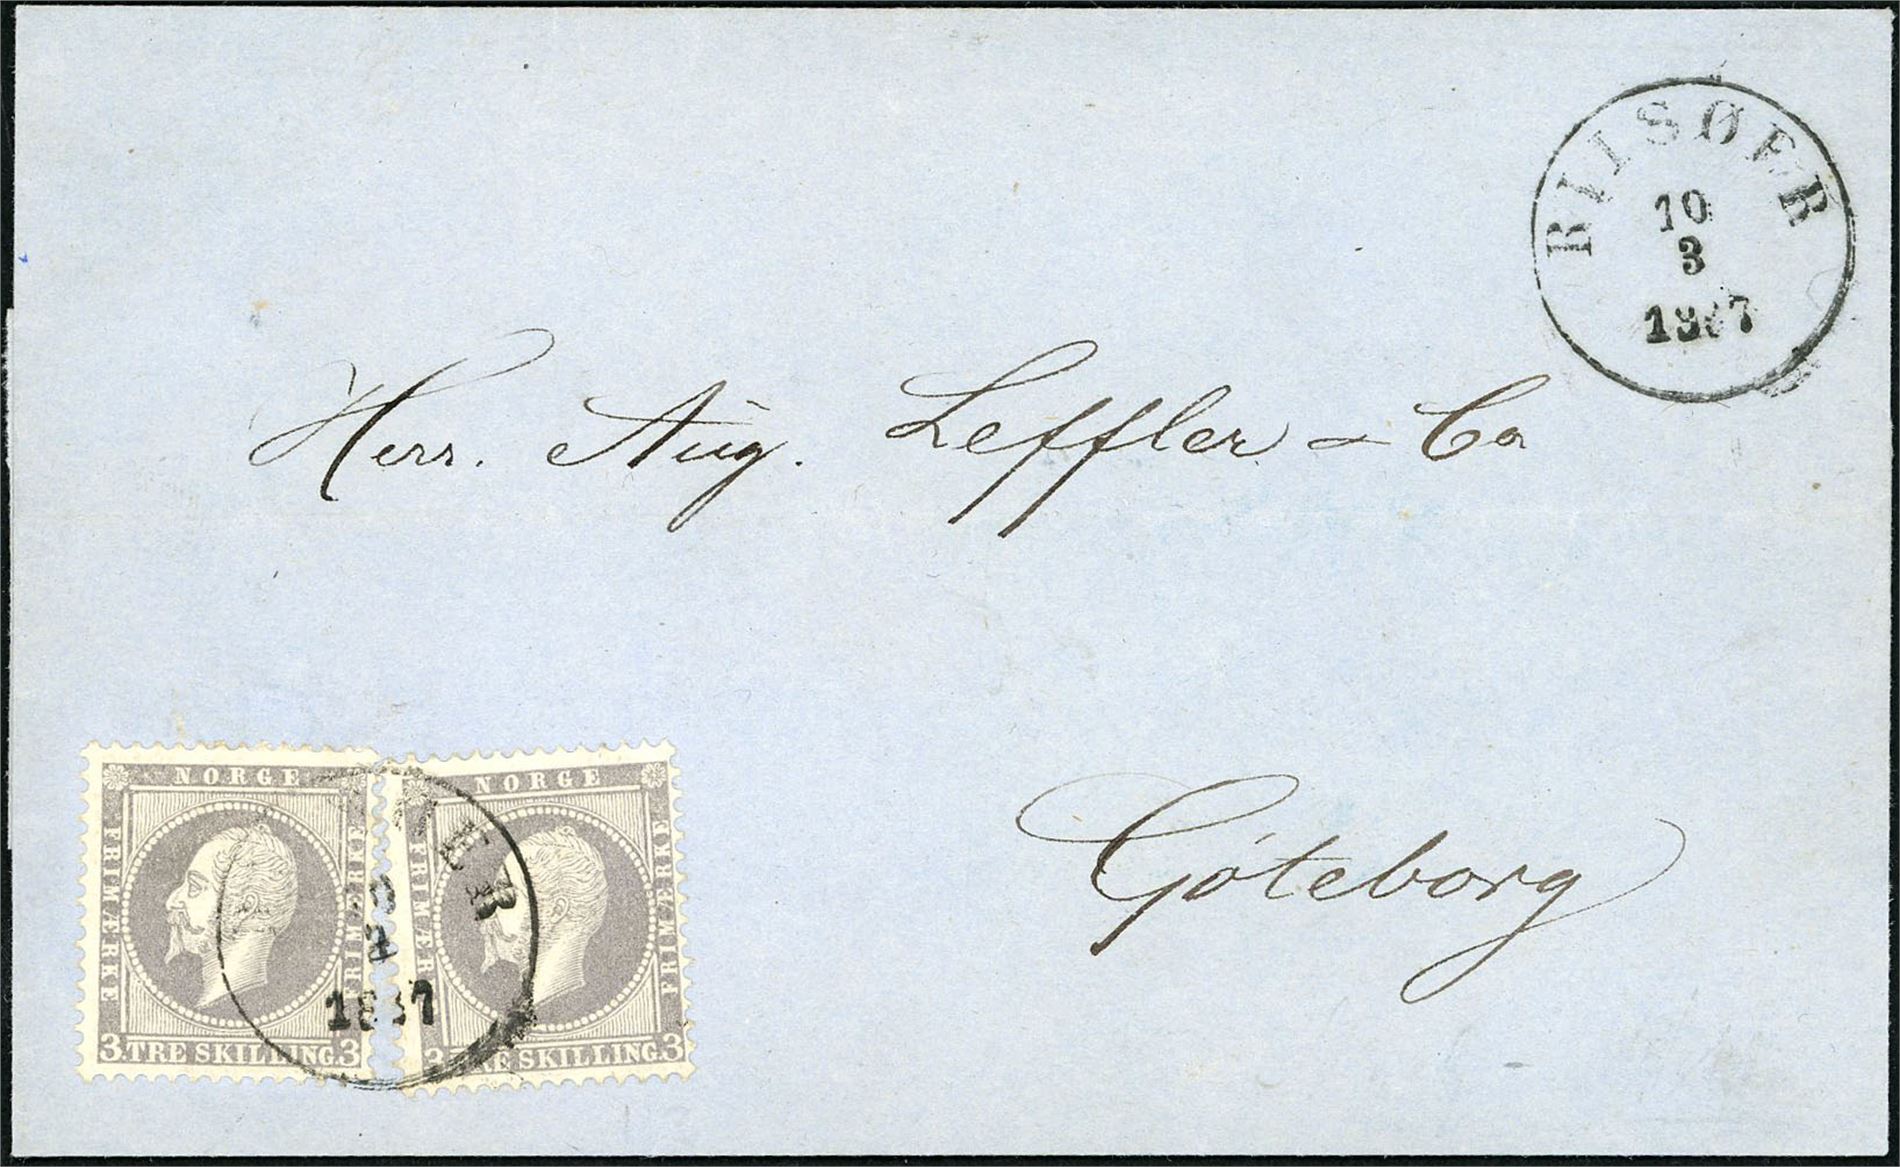 RIISØER
10
3
1867
Herr. Aug. Leffler & Co
Göteborg
NORGE
FRIMÆRKE
FRIMÆRKE
3 TRE SKILLING 3
NORGE
FRIMÆRKE
FRIMÆRKE
3 TRE SKILLING 3
ER
1867